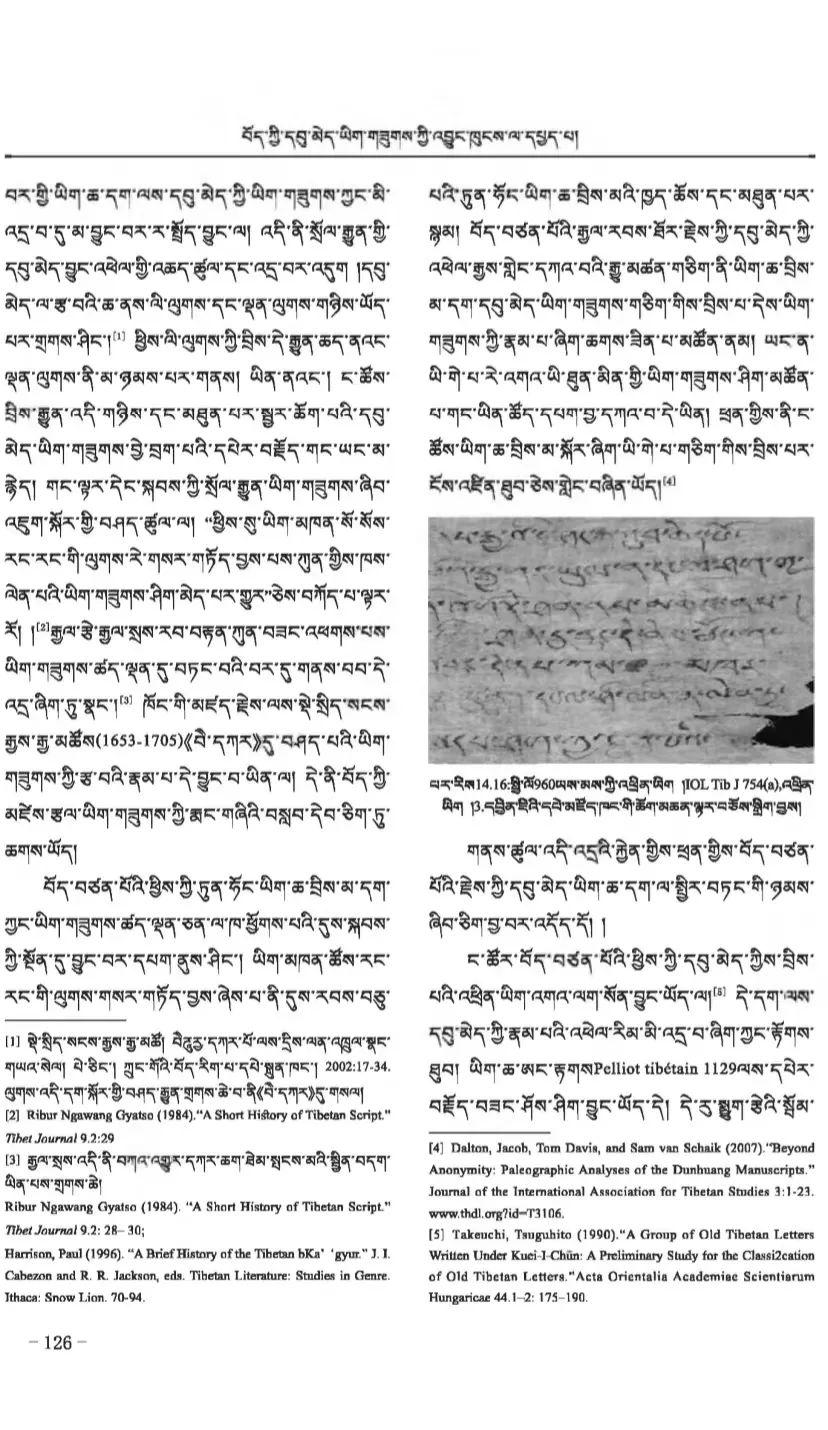 བོད་ཀྱི་དབུ་མེད་ཡིག་གཟུགས་ཀྱི་འབྱུང་ཁུངས་ལ་དཔྱད་པ།
བར་གྱི་ཡིག་ཆ་དག་ལས་དབུ་མེད་ཀྱི་ཡིག་གཟུགས་ཀྱང་མི་
འདྲ་བ་དུ་མ་བྱུང་བར་ར་སྤྲོད་བྱུང་ལ། འདི་ནི་སྲོལ་རྒྱུན་གྱི་
དབུ་མེད་བྱུང་འཕེལ་གྱི་འཆད་ཚུལ་དང་འདྲ་བར་འདུག །དབུ་
མེད་ལ་རྩ་བའི་ཆ་ནས་ལི་ལུགས་དང་ལྡན་ལུགས་གཉིས་ཡོད་
པར་གྲགས་ཤིང་།[1] ཕྱིས་ལི་ལུགས་ཀྱི་བྲིས་དེ་རྒྱུན་ཆད་ནའང་
ལྡན་ལུགས་ནི་མ་ཉམས་པར་གནས། ཡིན་ནའང་། ང་ཚོས་
བྲིས་རྒྱུན་འདི་གཉིས་དང་མཐུན་པར་སྦྱར་ཆོག་པའི་དབུ་
མེད་ཡིག་གཟུགས་བྱེ་བྲག་པའི་དཔེར་བརྗོད་གང་ཡང་མ་
རྙེད། གང་ལྟར་དེང་སྐབས་ཀྱི་སྲོལ་རྒྱུན་ཡིག་གཟུགས་ཞིབ་
འཇུག་སྐོར་གྱི་བཤད་ཚུལ་ལ། “ཕྱིས་སུ་ཡིག་མཁན་སོ་སོས་
རང་རང་གི་ལུགས་རེ་གསར་གཏོད་བྱས་པས་ཀུན་གྱིས་ཁས་
ལེན་པའི་ཡིག་གཟུགས་ཤིག་མེད་པར་གྱུར”ཅེས་བཀོད་པ་ལྟར་
རོ། །[2]རྒྱལ་རྩེ་རྒྱལ་སྲས་རབ་བརྟན་ཀུན་བཟང་འཕགས་པས་
ཡིག་གཟུགས་ཚད་ལྡན་དུ་བཏང་བའི་བར་དུ་གནས་བབ་དེ་
འདྲ་ཞིག་ཏུ་སྣང་།[3] ཁོང་གི་མཛད་རྗེས་ལས་སྡེ་སྲིད་སངས་
རྒྱས་རྒྱ་མཚོས(1653-1705)《བཻ་དཀར》དུ་བཤད་པའི་ཡིག་
གཟུགས་ཀྱི་རྩ་བའི་རྣམ་པ་དེ་བྱུང་བ་ཡིན་ལ། དེ་ནི་བོད་ཀྱི་
མཛེས་རྩལ་ཡིག་གཟུགས་ཀྱི་རྨང་གཞིའི་བསླབ་དེབ་ཅིག་ཏུ་
ཆགས་ཡོད།
བོད་བཙན་པོའི་ཕྱིས་ཀྱི་ཏུན་ཧོང་ཡིག་ཆ་བྲིས་མ་དག་
ཀྱང་ཡིག་གཟུགས་ཚད་ལྡན་ཅན་ལ་ཁ་ཕྱོགས་པའི་དུས་སྐབས་
ཀྱི་སྔོན་དུ་བྱུང་བར་དཔག་ནུས་ཤིང་། ཡིག་མཁན་ཚོས་རང་
རང་གི་ལུགས་གསར་གཏོད་བྱས་ཞེས་པ་ནི་དུས་རབས་བཅུ་
[1] སྡེ་སྲིད་སངས་རྒྱས་རྒྱ་མཚོ། བཻ་ཌཱུརྱ་དཀར་པོ་ལས་དྲིས་ལན་འཁྲུལ་སྣང་
གཡའ་སེལ། པེ་ཅིང་། ཀྲུང་གོའི་བོད་རིག་པ་དཔེ་སྐྲུན་ཁང་། 2002:17-34.
ལུགས་འདི་དག་སྐོར་གྱི་བཤད་རྒྱུན་གྲགས་ཆེ་བ་ནི《བཻ་དཀར》དུ་གསལ།
[2] Ribur Ngawang Gyatso (1984).“A Short History of Tibetan Script.”
Tibet Journal 9.2:29
[3] རྒྱལ་སྲས་འདི་ནི་བཀའ་འགྱུར་དཀར་ཆག་ཐེམ་སྤངས་མའི་སྦྱིན་བདག་
ཡིན་པས་གྲགས་ཆེ།
Ribur Ngawang Gyatso (1984). “A Short History of Tibetan Script.”
Tibet Journal 9.2: 28– 30;
Harrison, Paul (1996). “A Brief History of the Tibetan bKa’ ‘gyur.” J. I.
Cabezon and R. R. Jackson, eds. Tibetan Literature: Studies in Genre.
Ithaca: Snow Lion. 70-94.
– 126 –
པའི་ཏུན་ཧོང་ཡིག་ཆ་བྲིས་མའི་ཁྱད་ཆོས་དང་མཐུན་པར་
སྙམ། བོད་བཙན་པོའི་རྒྱལ་རབས་ཐོར་རྗེས་ཀྱི་དབུ་མེད་ཀྱི་
འཕེལ་རྒྱས་གླེང་དཀའ་བའི་རྒྱུ་མཚན་གཅིག་ནི་ཡིག་ཆ་བྲིས་
མ་དག་དབུ་མེད་ཡིག་གཟུགས་གཅིག་གིས་བྲིས་པ་དེས་ཡིག་
གཟུགས་ཀྱི་རྣམ་པ་ཞིག་ཆགས་ཟིན་པ་མཚོན་ནམ། ཡང་ན་
ཡི་གེ་པ་རེ་འགའ་ཡི་ཐུན་མིན་གྱི་ཡིག་གཟུགས་ཤིག་མཚོན་
པ་གང་ཡིན་ཚོད་དཔག་བྱ་དཀའ་བ་དེ་ཡིན། ཕྲན་གྱིས་ནི་ང་
ཚོས་ཡིག་ཆ་བྲིས་མ་སྐོར་ཞིག་ཡི་གེ་པ་གཅིག་གིས་བྲིས་པར་
ངོས་འཛིན་ཐུབ་ཅེས་གླེང་བཞིན་ཡོད།[4]
པར་རིས14.16:སྤྱི་ལོ960ཡས་མས་ཀྱི་འཕྲིན་ཡིག །IOL Tib J 754(a),འཕྲིན་
ཡིག །3.དབྱིན་ཇིའི་དཔེ་མཛོད་ཁང་གི་ཆོག་མཆན་ལྟར་བཅོས་སྒྲིག་བྱས།
གནས་ཚུལ་འདི་འདྲའི་རྐྱེན་གྱིས་ཕྲན་གྱིས་བོད་བཙན་
པོའི་རྗེས་ཀྱི་དབུ་མེད་ཡིག་ཆ་དག་ལ་སྤྱིར་བཏང་གི་ཉམས་
ཞིབ་ཅིག་བྱ་བར་འདོད་དོ། །
ང་ཚོར་བོད་བཙན་པོའི་ཕྱིས་ཀྱི་དབུ་མེད་ཀྱིས་བྲིས་
པའི་འཕྲིན་ཡིག་འགའ་ལག་སོན་བྱུང་ཡོད་ལ།[5] དེ་དག་ལས་
དབུ་མེད་ཀྱི་རྣམ་པའི་འཕེལ་རིམ་མི་འདྲ་བ་ཞིག་ཀྱང་རྟོགས་
ཐུབ། ཡིག་ཆ་ཨང་རྟགསPelliot tibétain 1129ལས་དཔེར་
བརྗོད་བཟང་ཤོས་ཤིག་བྱུང་ཡོད་དེ། དེ་རུ་སྨྱུག་རྩེའི་སྦོམ་
[4] Dalton, Jacob, Tom Davis, and Sam van Schaik (2007).“Beyond
Anonymity: Paleographic Analyses of the Dunhuang Manuscripts.”
Journal of the International Association for Tibetan Studies 3:1-23.
www.thdl.org?id=T3106.
[5] Takeuchi, Tsuguhito (1990).“A Group of Old Tibetan Letters
Written Under Kuei-I-Chün: A Preliminary Study for the Classi2cation
of Old Tibetan Letters.”Acta Orientalia Academiae Scientiarum
Hungaricae 44.1–2: 175–190.